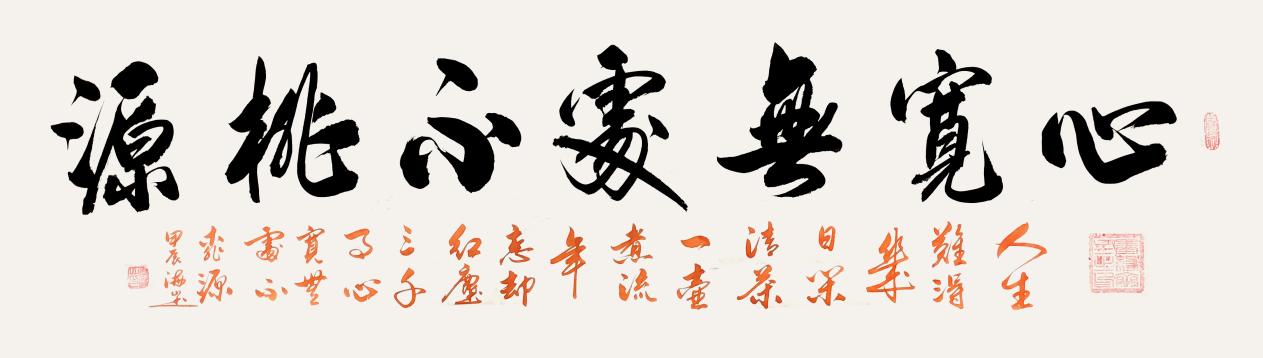 心寬無處不桃源
人生
難得
幾
日閑
清茶
一壺
煮流
年
忘却
紅塵
三千
事心
寬無
處不
桃源
甲辰